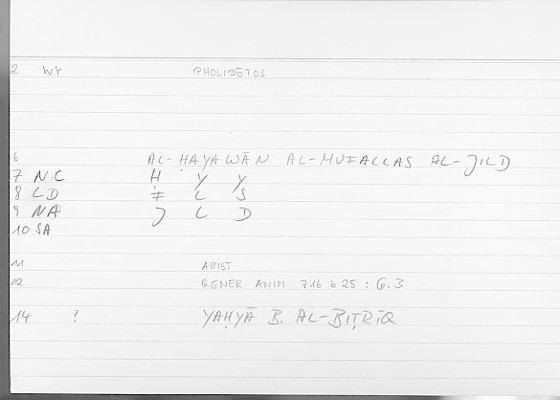 2 WY PHOLIDŌTOS
6 AL-ḤAYAWĀN AL-MUFALLAS AL-JILD
7 NC Ḥ Y Y
8 LD F L S
9 NA J L D
10 SA
11 ARIST
12 GENER ANIM 716 b 25 : 6.3
14 ? YAḤYĀ B. AL-BIṬRĪQ